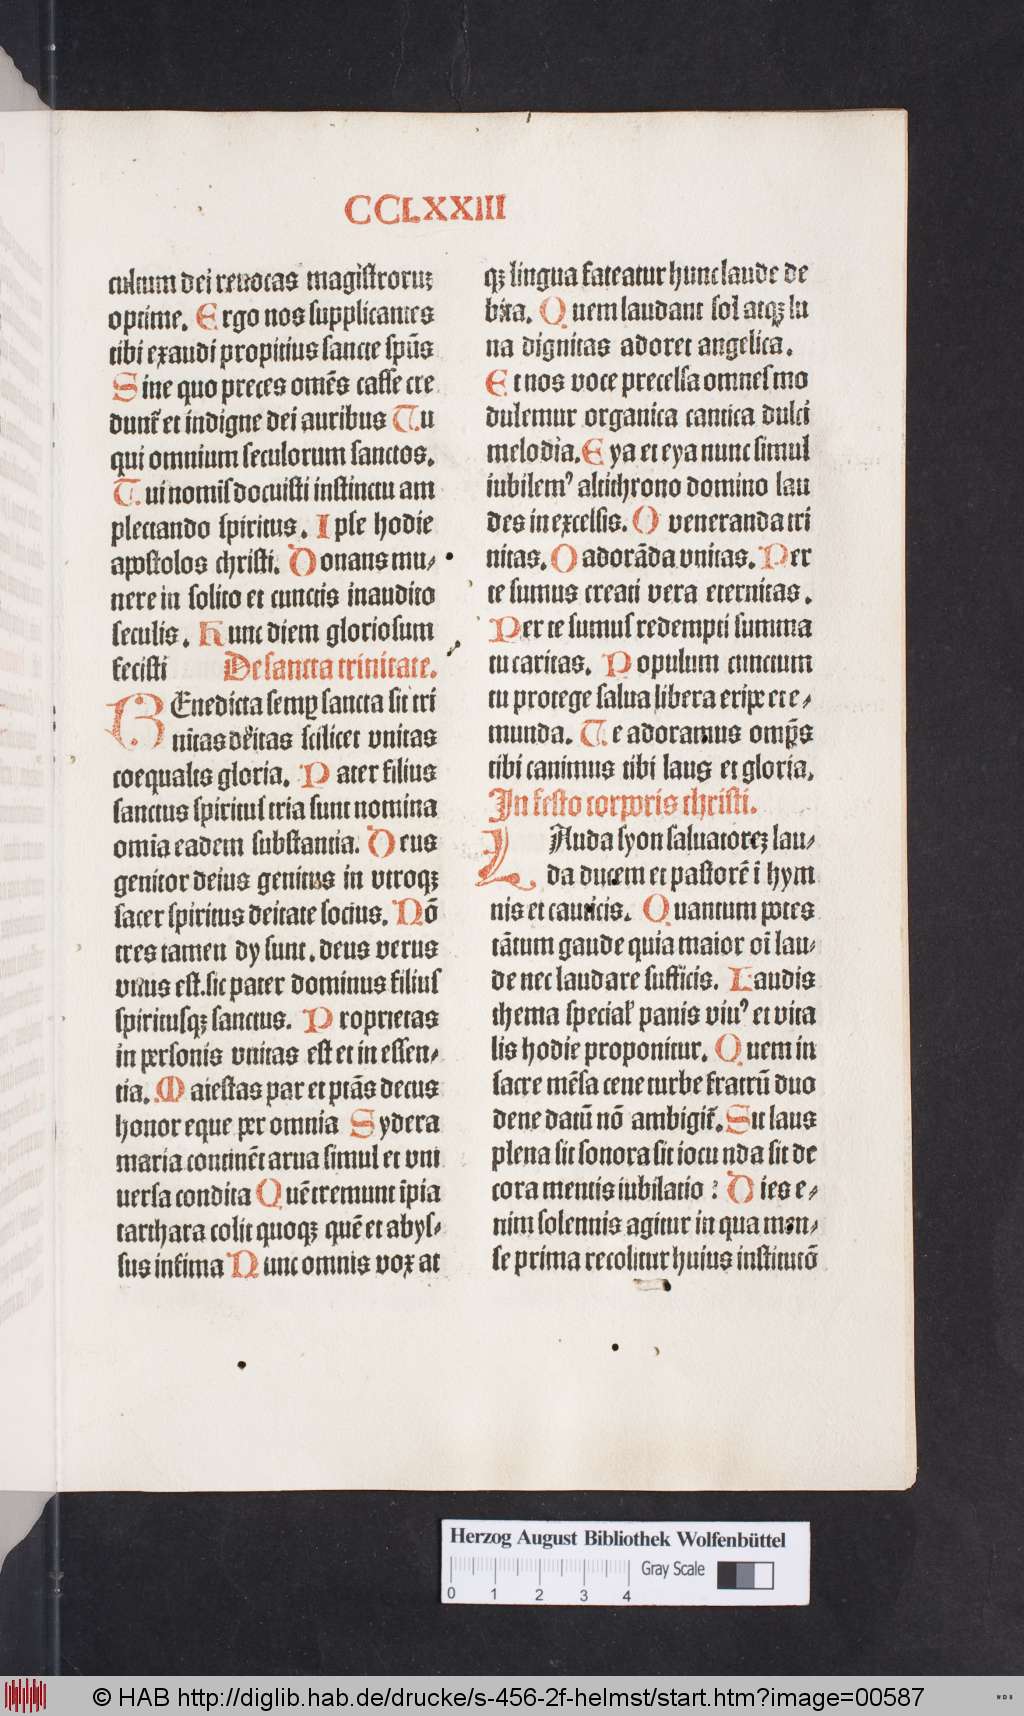 CCLXXIII
cultum dei reuocas magistroruꝫ
optime. Ergo nos supplicantes
tibi exaudi propitius sancte sp̄us
Sine quo preces om̄es casse cre
dunt᷑ et indigne dei auribus Tu
qui omnium seculorum sanctos.
Tui nomīs docuisti instinctu am
plectando spiritus. Ipse hodie
apostolos christi. Donans mu⸗
nere in solito et cunctis inaudito
seculis. Hunc diem gloriosum
fecisti De sancta trinitate.
BEnedicta semꝑ sancta sit tri
nitas deitas scilicet vnitas
coequalis gloria. Pater filius
sanctus spiritus tria sunt nomina
omīa eadem substantia. Deus
genitor deius genitus in vtroqꝫ
sacer spiritus deitate socius. Nō
tres tamen dy sunt. deus verus
vnus est. sic pater dominus filius
spiritusqꝫ sanctus. Proprietas
in personis vnitas est et in essen⸗
tia. Maiestas par et ptās decus
honor eque per omnia Sydera
maria continēt arua simul et vni
uersa condita Quē tremunt īpia
tarthara colit quoqꝫ quē et abys⸗
sus infima Nunc omnis vox at
qꝫ lingua fateatur hunc laude de
bita. Quem laudant sol atqꝫ lu
na dignitas adoret angelica.
Et nos voce precelsa omnes mo
dulemur organica cantica dulci
melodia. Eya et eya nunc simul
iubilemꝰ altithrono domino lau
des in excelsis. O veneranda tri
nitas. O adorāda vnitas. Per
te sumus creati vera eternitas.
Per te sumus redempti summa
tu caritas. Populum cunctum
tu protege salua libera eripe et e⸗
munda. Te adoramus omp̄s
tibi canimus tibi laus et gloria.
In festo corporis christi.
LAuda syon saluatoreꝫ lau⸗
da ducem et pastorē ī hym
nis et canticis. Quantum potes
tātum gaude quia maior oī lau⸗
de nec laudare sufficis. Laudis
thema special᷑ panis viuꝰ et vita
lis hodie proponitur. Quem in
sacre mēsa cene turbe fratrū duo
dene datū nō ambigit᷑. Sit laus
plena sit sonora sit iocunda sit de
cora mentis iubilatio: Dies e⸗
nim solennis agitur in qua men⸗
se prima recolitur huius institutō
Herzog August Bibliothek Wolfenbüttel
Gray Scale
0 1 2 3 4
© HAB http://diglib.hab.de/drucke/s-456-2f-helmst/start.htm?image=00587